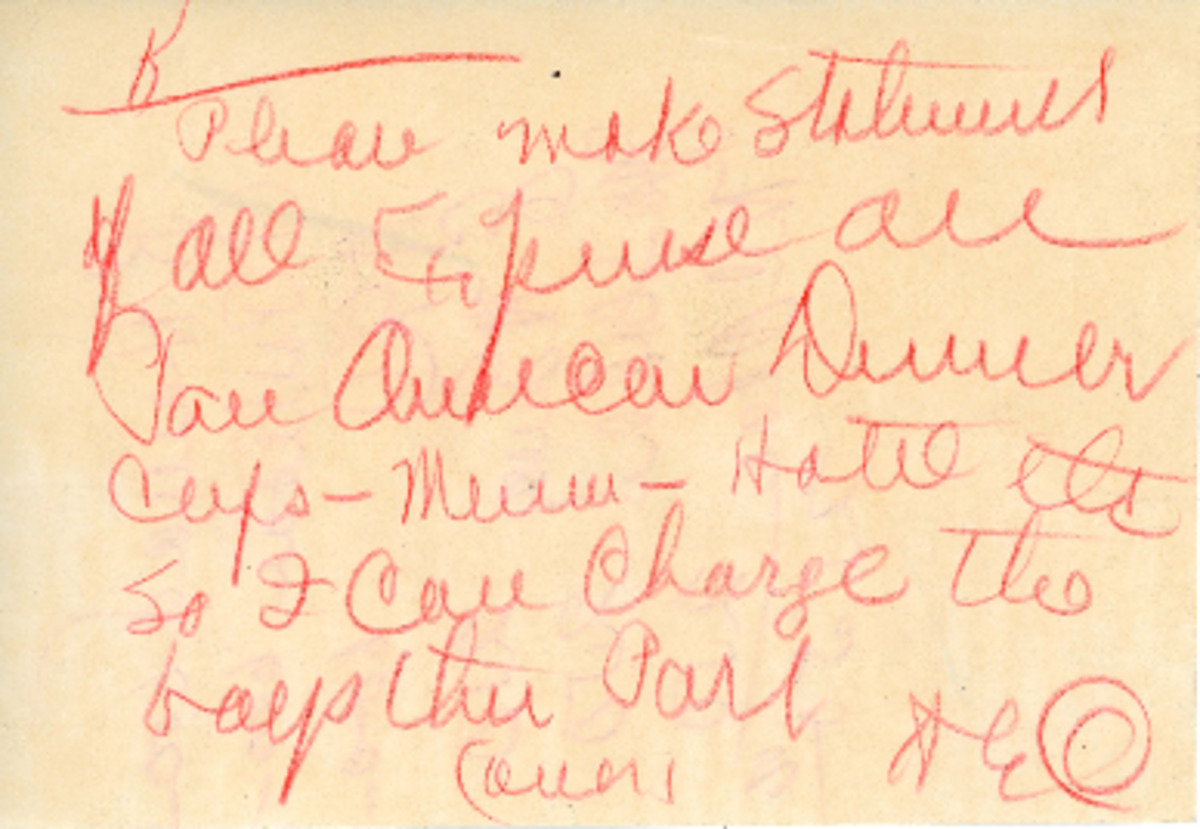 B
Please make Statement
of all Expense on
Pan American Dinner
Cups - Menu - Hotel etc
So I can charge the
boys their Part
(over)